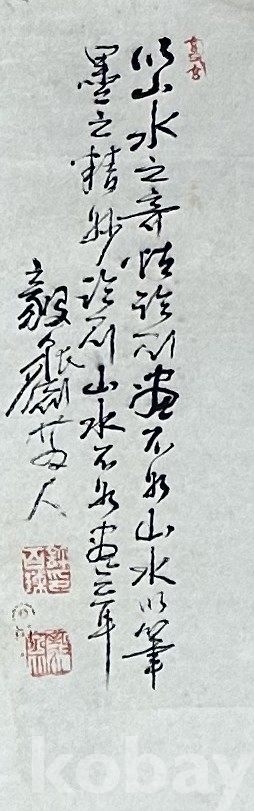 以山水之奇怪論則畫不如山水以筆
墨之精妙論則山水不如畫云耳
毅人
kobay